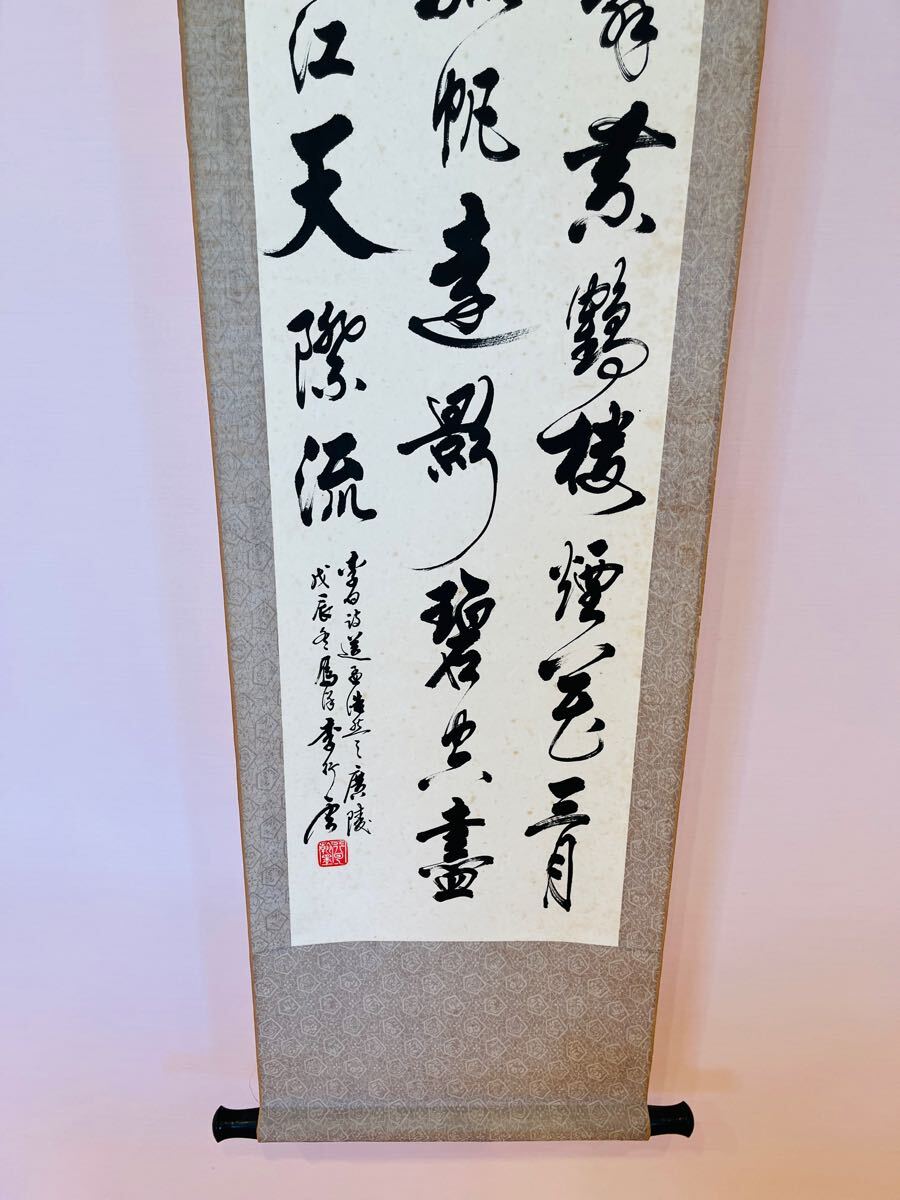 辞黄鶴楼煙花三月
孤帆遠影碧空盡
江天際流
李白詩送孟浩然之廣陵
戊辰冬 李行雲